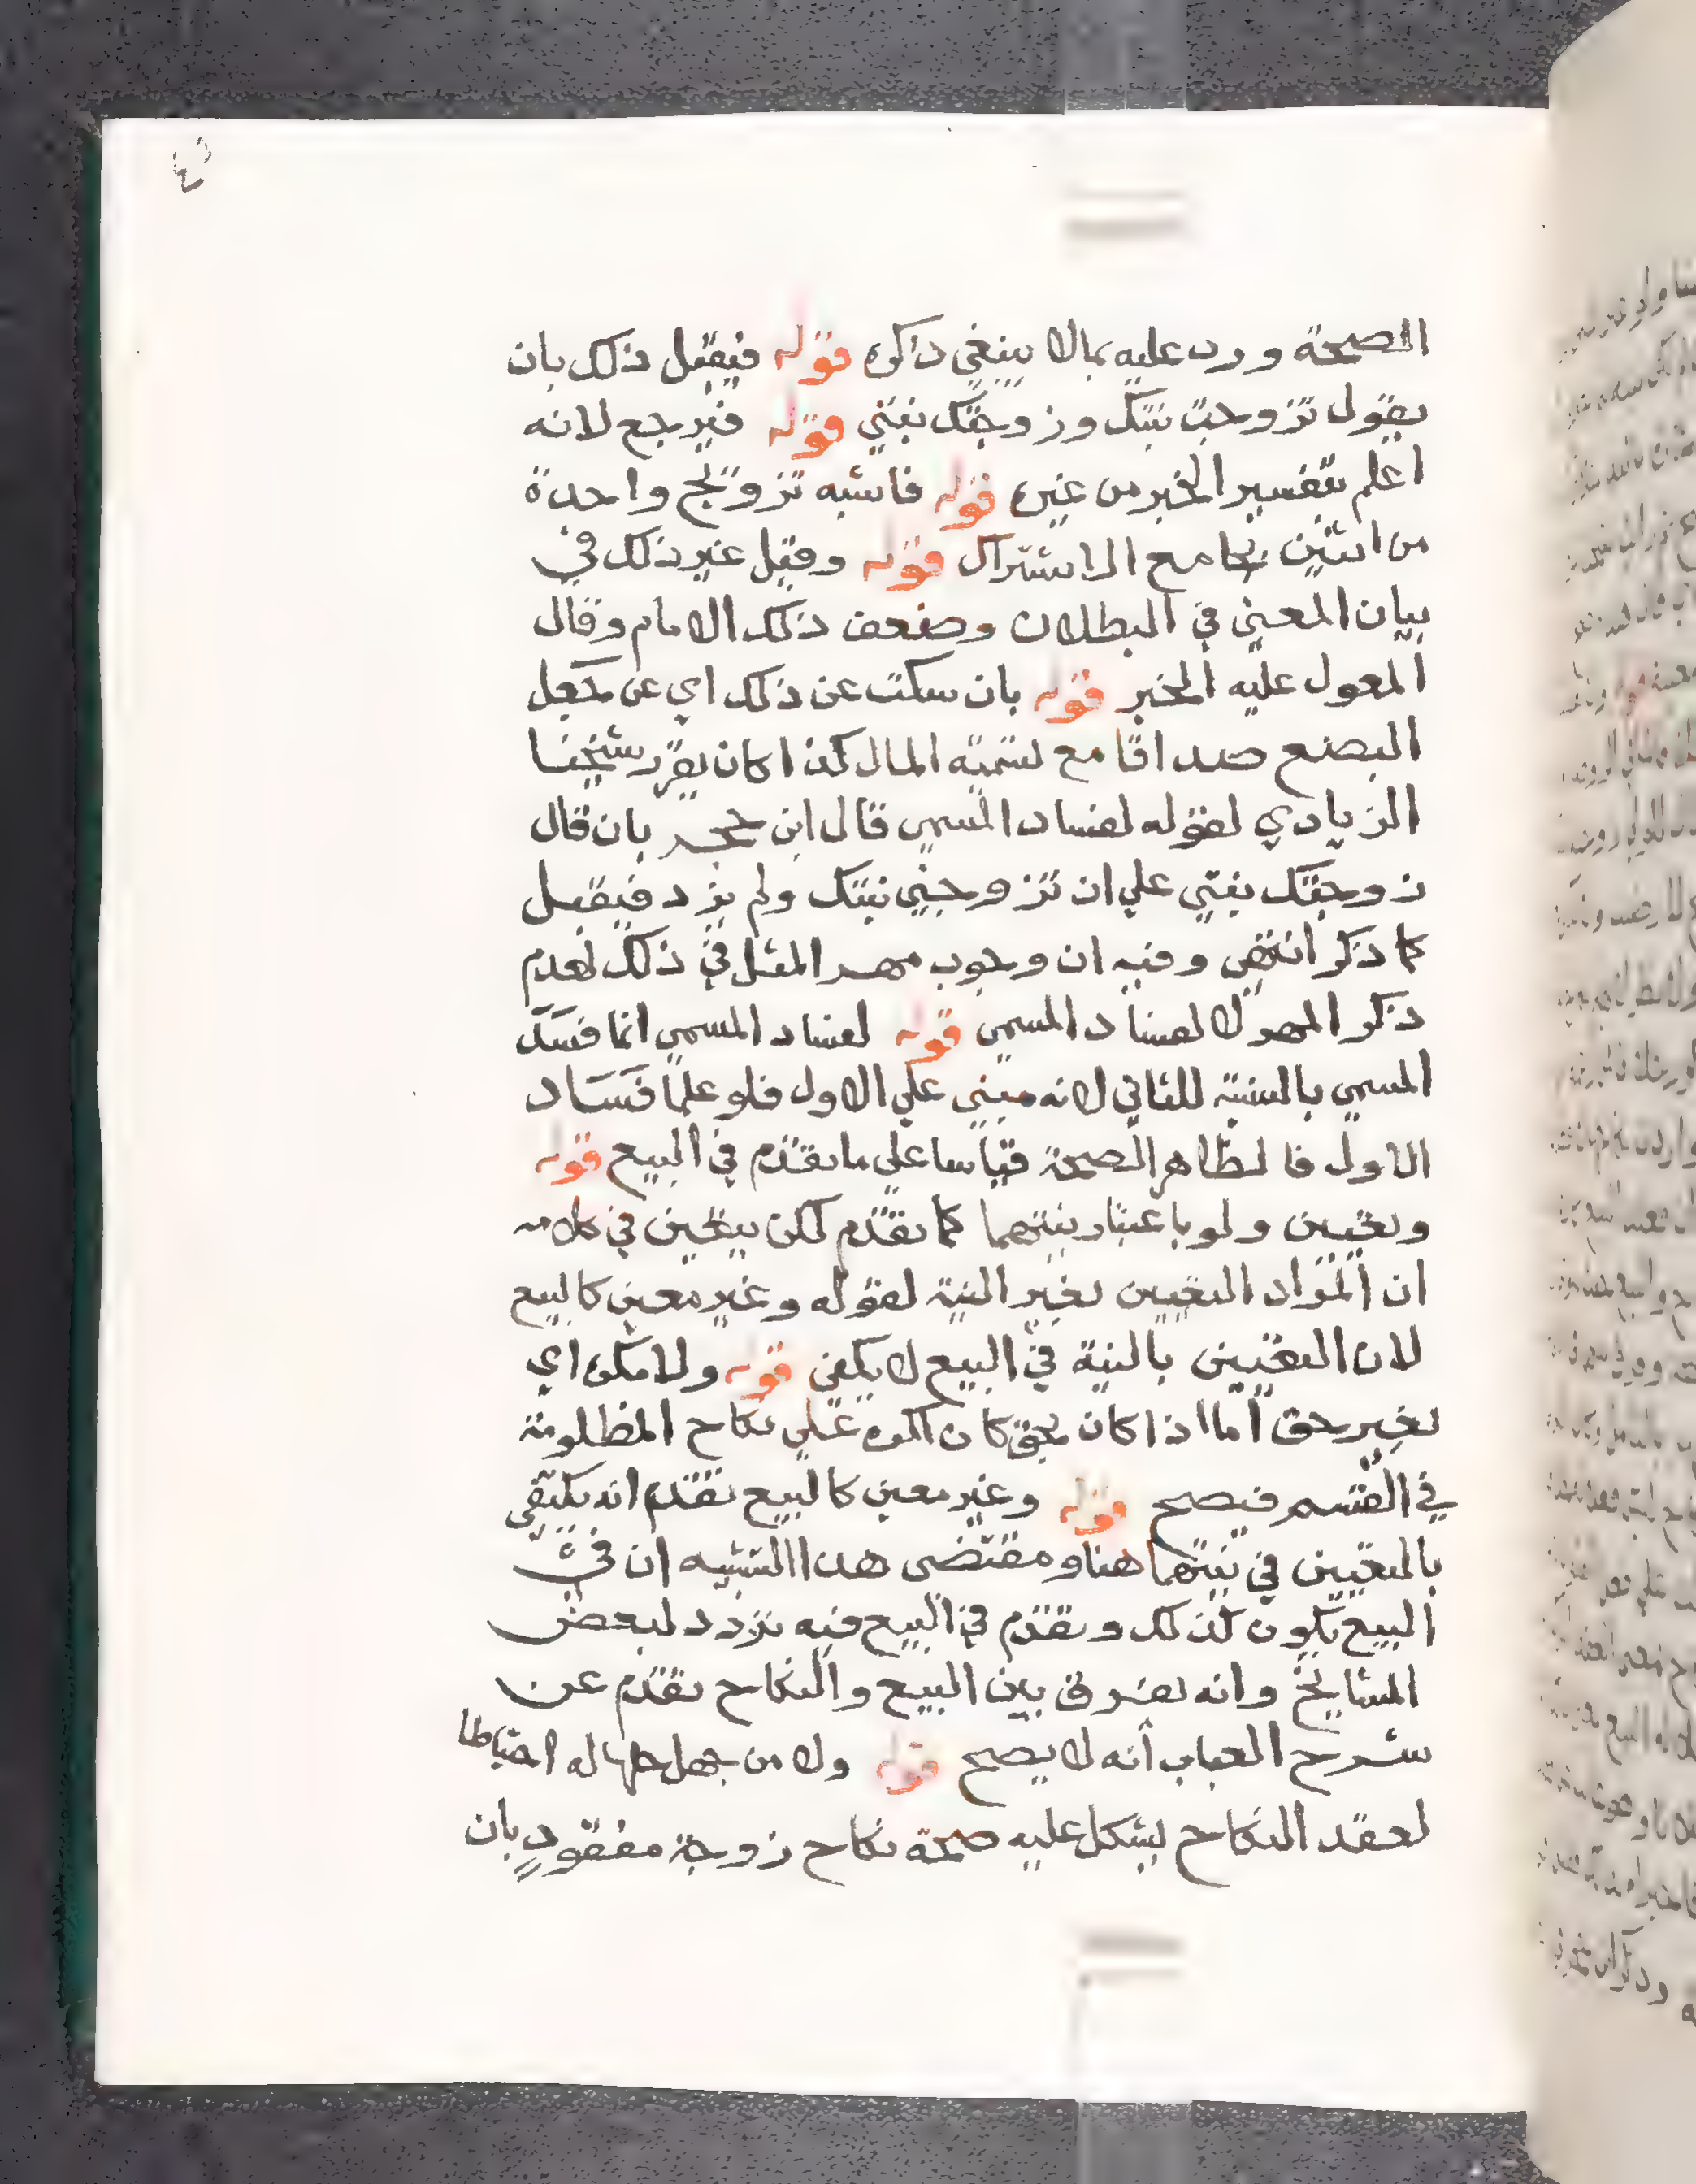 الصحة ورد عليه بما لا ينبغي ذكره قوله فيقبل ذلك بان
يقول تزوجت بنتك وزوجتك بنتي قوله فيرجع لانه
اعلم بتفسير الخبر من غيره قوله فاشبه تزويج واحدة
من اثنين بجامع الاشتراك قوله وقيل غير ذلك في
بيان المعنى في البطلان وضعف ذلك الامام وقال
المعول عليه الخبر قوله بان سكت عن ذلك اي عن جعل
البضع صداقا مع تسمية المال كذا كان يقرر شيخنا
الزيادي لقوله لفساد المسمى قال ابن حجر بان قال
زوجتك بنتي علي ان تزوجني بنتك ولم يزد فيقبل
كما ذكر انتهى وفيه ان وجوب مهر المثل في ذلك لعدم
ذكر المهر لا لفساد المسمى قوله لفساد المسمى انما فسد
المسمى بالنسبة للثاني لانه مبني علي الاول فلو علما فساد
الاول فالظاهر الصحة قياسا علي ما تقدم في البيع قوله
وتعيين ولو باعتبار نيتهما كما تقدم لكن يتعين في كلامه
ان المراد التعيين بغير النية لقوله وغير معين كالبيع
لان التعيين بالنية في البيع لا يكفي قوله ولا مكره اي
بغير حق اما اذا كان بحق كان اكره علي نكاح المظلومة
في القسم فيصح قوله وغير معين كالبيع تقدم انه يكتفي
بالتعيين في نيتهما هنا ومقتضى هذا التشبيه ان في
البيع يكون كذلك وتقدم في البيع فيه تردد لبعض
المشايخ وانه يفرق بين البيع والنكاح تقدم عن
شرح العباب أنه لا يصح قوله ولا من جهل حلها له احتياطا
لعقد النكاح يشكل عليه صحة نكاح زوجة مفقود بان